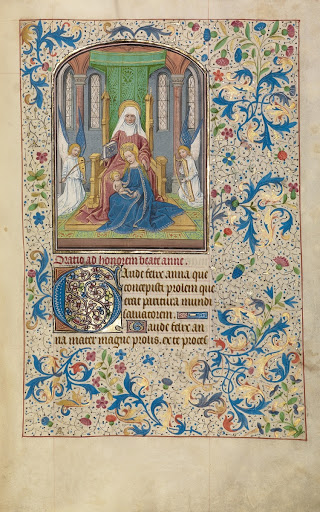 Oratio ad honorem beate anne.
Gaude felix anna que
concepisti prolem que
erat paritura mundi
saluatorem. Gaude felix an
na mater magne prolis. ex te proces